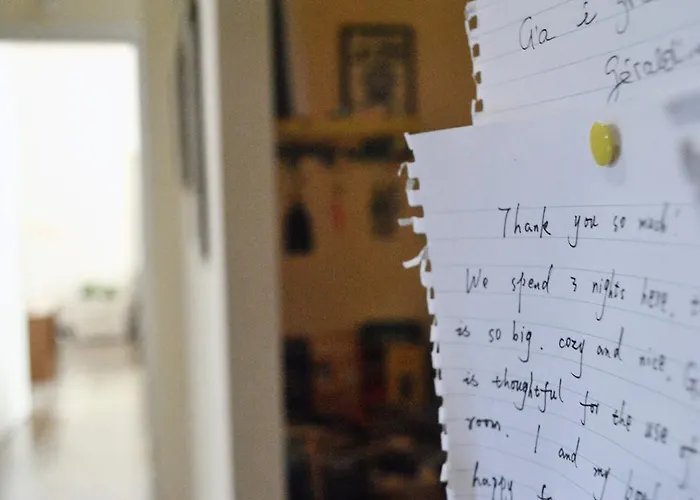 Thank you so much
We spend 3 nights here.
is so big. cozy and nice.
is thoughtful for the use
room. I and my
happy